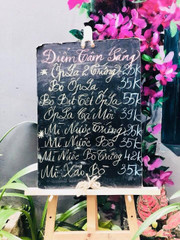 Điểm Tâm Sáng
Ốp La 2 Trứng 25K
Bò Ốp La 35K
Bò Bít Tết Ốp La 55K
Ốp La Cá Mòi 39K
Mì Nước Trứng 25K
Mì Nước Bò 35K
Mì Nước Bò Trứng 42K
Mì Xào Bò 35K